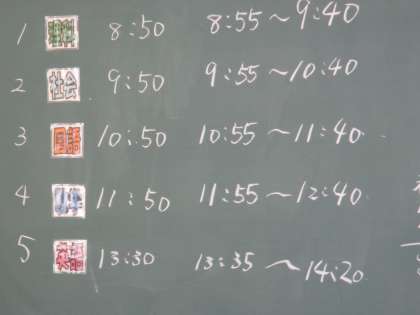 1 8:50 8:55～9:40
2 社会 9:50 9:55～10:40
3 国語 10:50 10:55～11:40
4 11:50 11:55～12:40
5 13:30 13:35～14:20